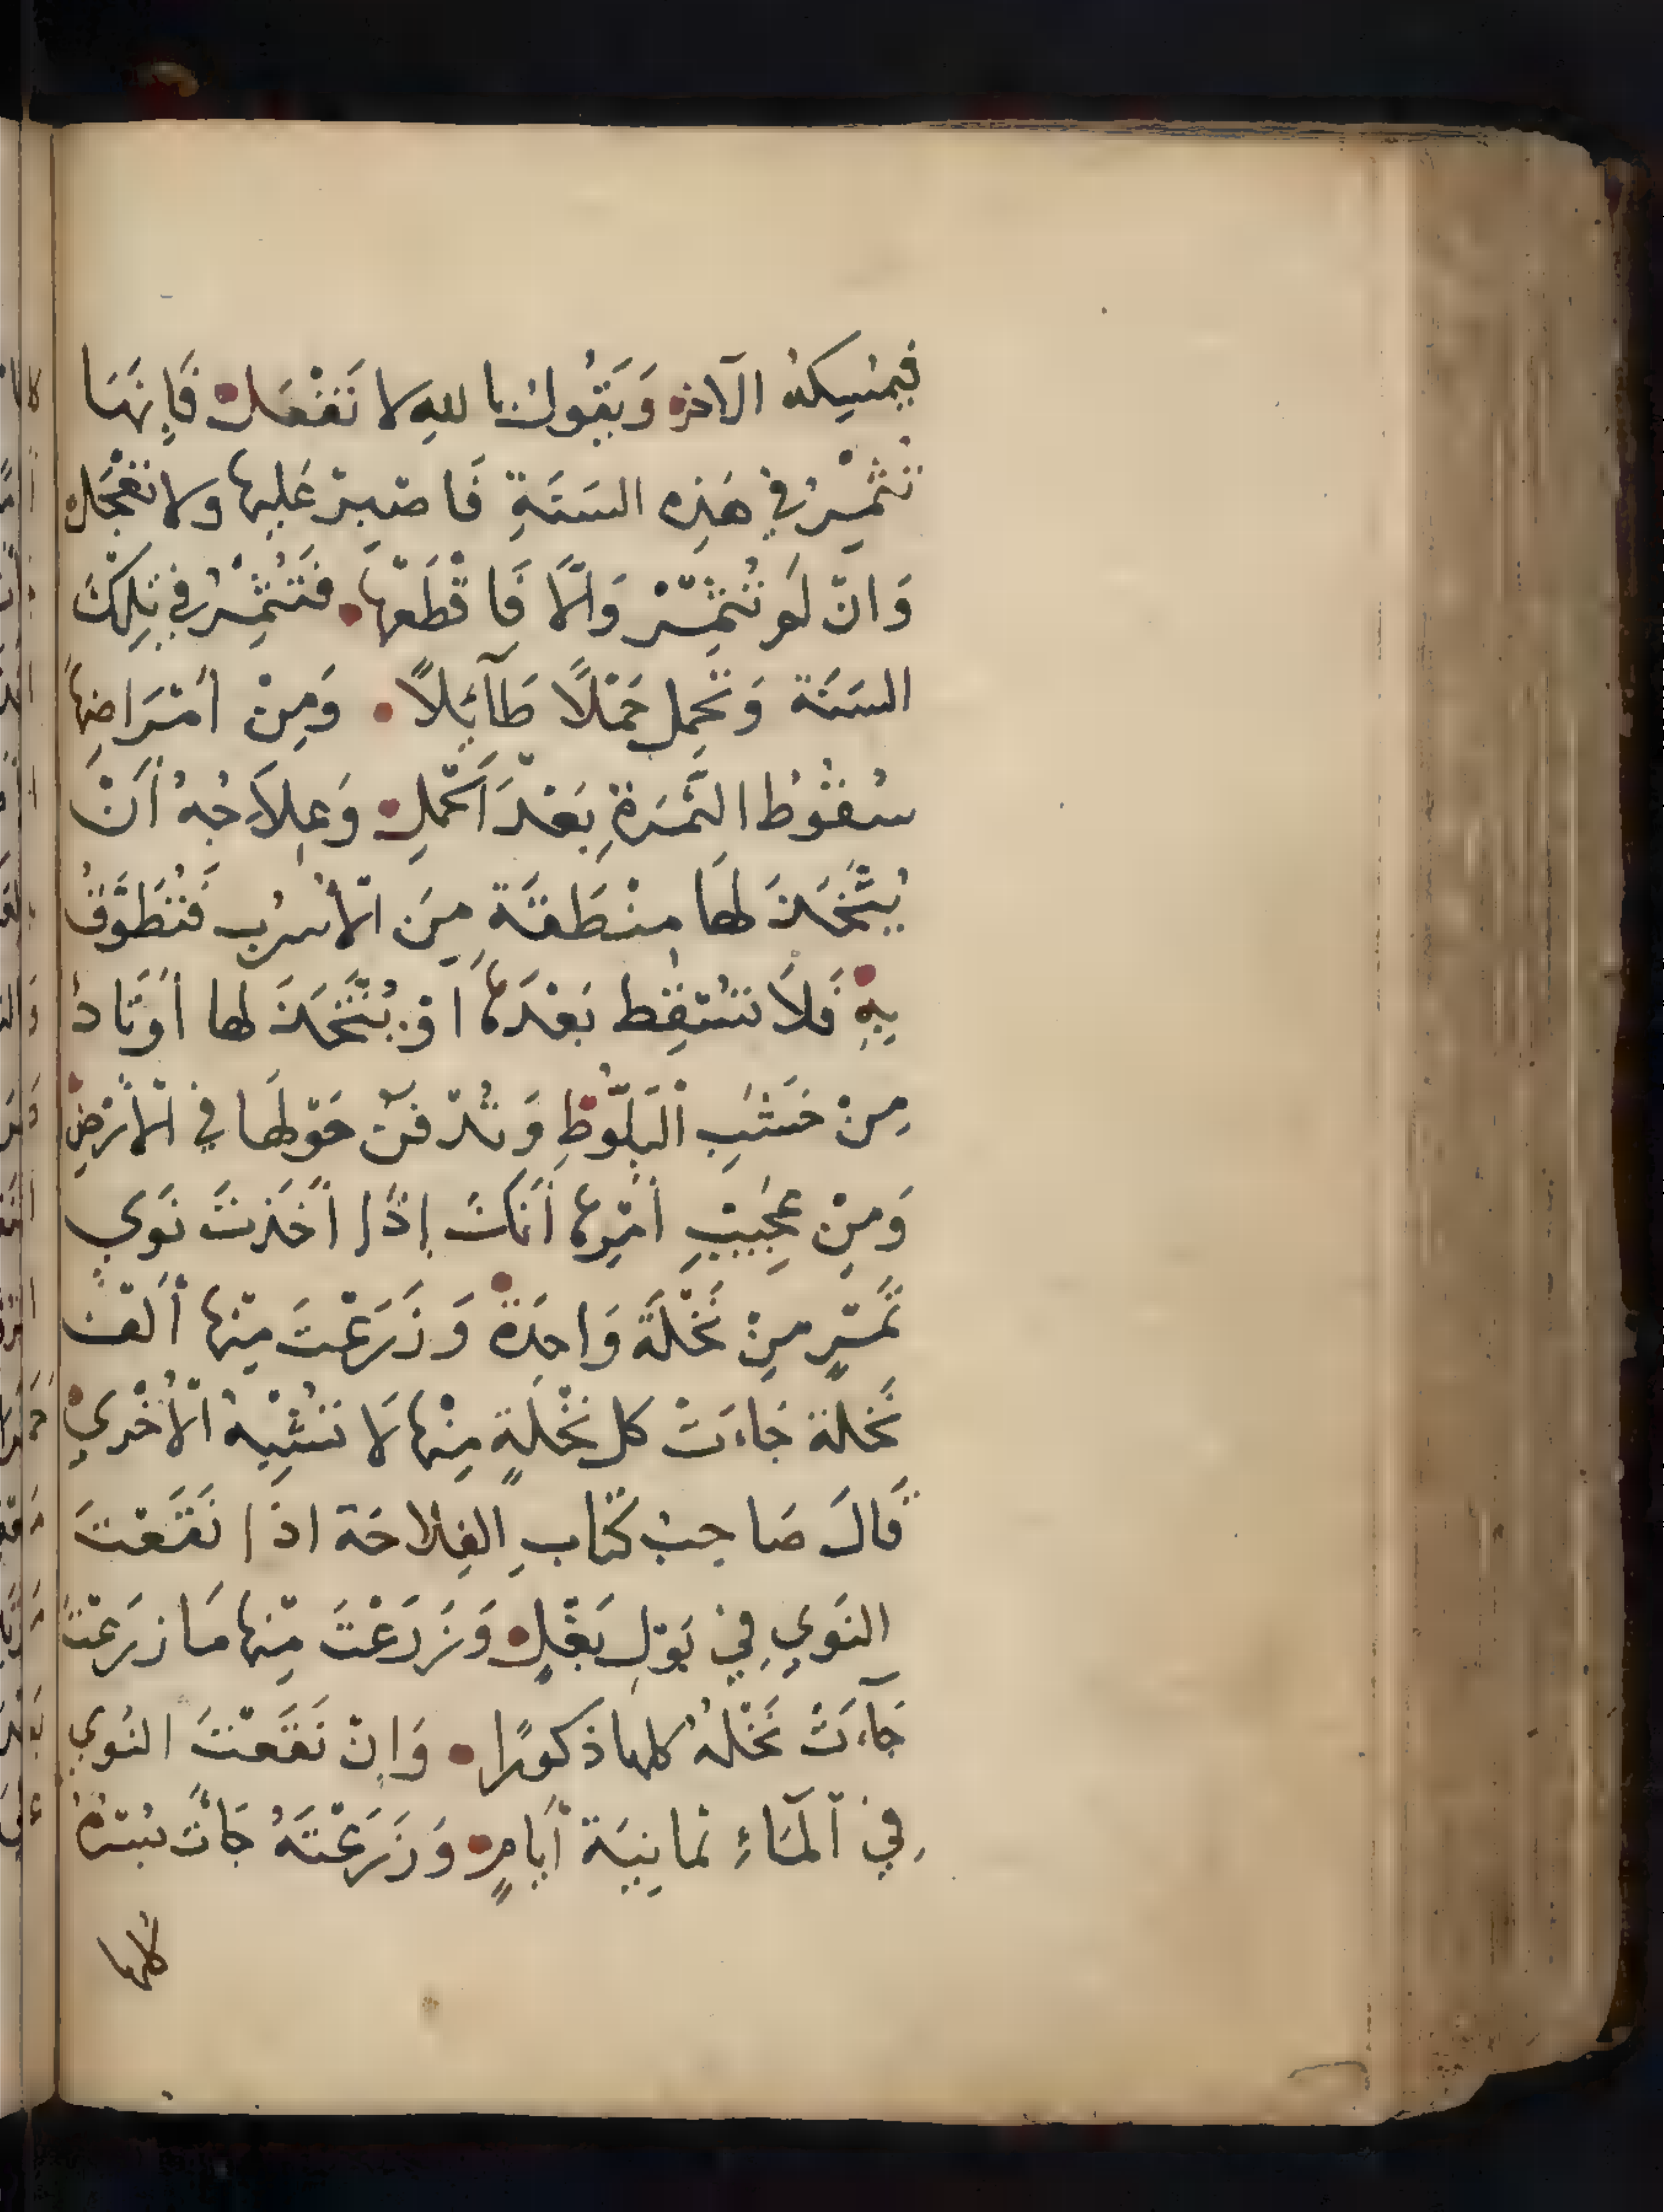 فيمسكهُ الآخر وَيَقُولُ بالله لا تَفْعَل فَإِنهَا
تُثْمِرُ في هَذِه السَنَةِ فَاصْبِرْ عَليها ولا تعْجَل
وَانّ لَم تُثْمِرْ وَالّا فَاقْطَعْهَا فَتُثْمِرُ في تِلكَ
السَنَة وَتحْمِل حَمْلًا طَآئِلًا وَمِنْ أمْرَاضِهَا
سُقُوْطُ الثَّمَرَةِ بَعْدَ الحَمْلِ وَعِلاَجُهُ أَنْ
يُتَّخَذَ لهَا مِنْطَقَة مِنَ الْأُسْرُب فَتُطَوَّقُ
بِهِ فَلاَ تَسْقِط بَعْدَهَا أوْ يُتَّخَذَ لها أوْتَادُ
مِنْ خَشَبِ الْبَلّوُطِ وَتُدْفَن حَوْلهَا في الْأرْضِ
وَمِنْ عَجِيْبِ أمْرِهَا أنَكَ إذَا أخَذْتَ نَوَي
تَمْرٍ مِنْ نَخْلَة وَاحِدَة وَزَرَعْتَ مِنْها أَلفَ
نَخلة جَاءَتْ كل نَخْلَةٍ مِنْها لَا تُشْبِهُ الْأُخْرَي
قَالَ صَاحِبُ كتَابِ الفِلاحَة اذَا نَقَعْتَ
النَوَي فِي بَوْلِ بَغْلٍ وَزَرَعْتَ مِنْها مَا زرَعْتَ
جَآءَتْ نَخْلهُ كلها ذكورًا وَإنْ نَقَعْتَ النَوي
فِي الْمَاءِ ثمَانِيَة أيَامٍ وَزَرَعْتَهُ جَاتْ بُسْرَهُ
كُلها